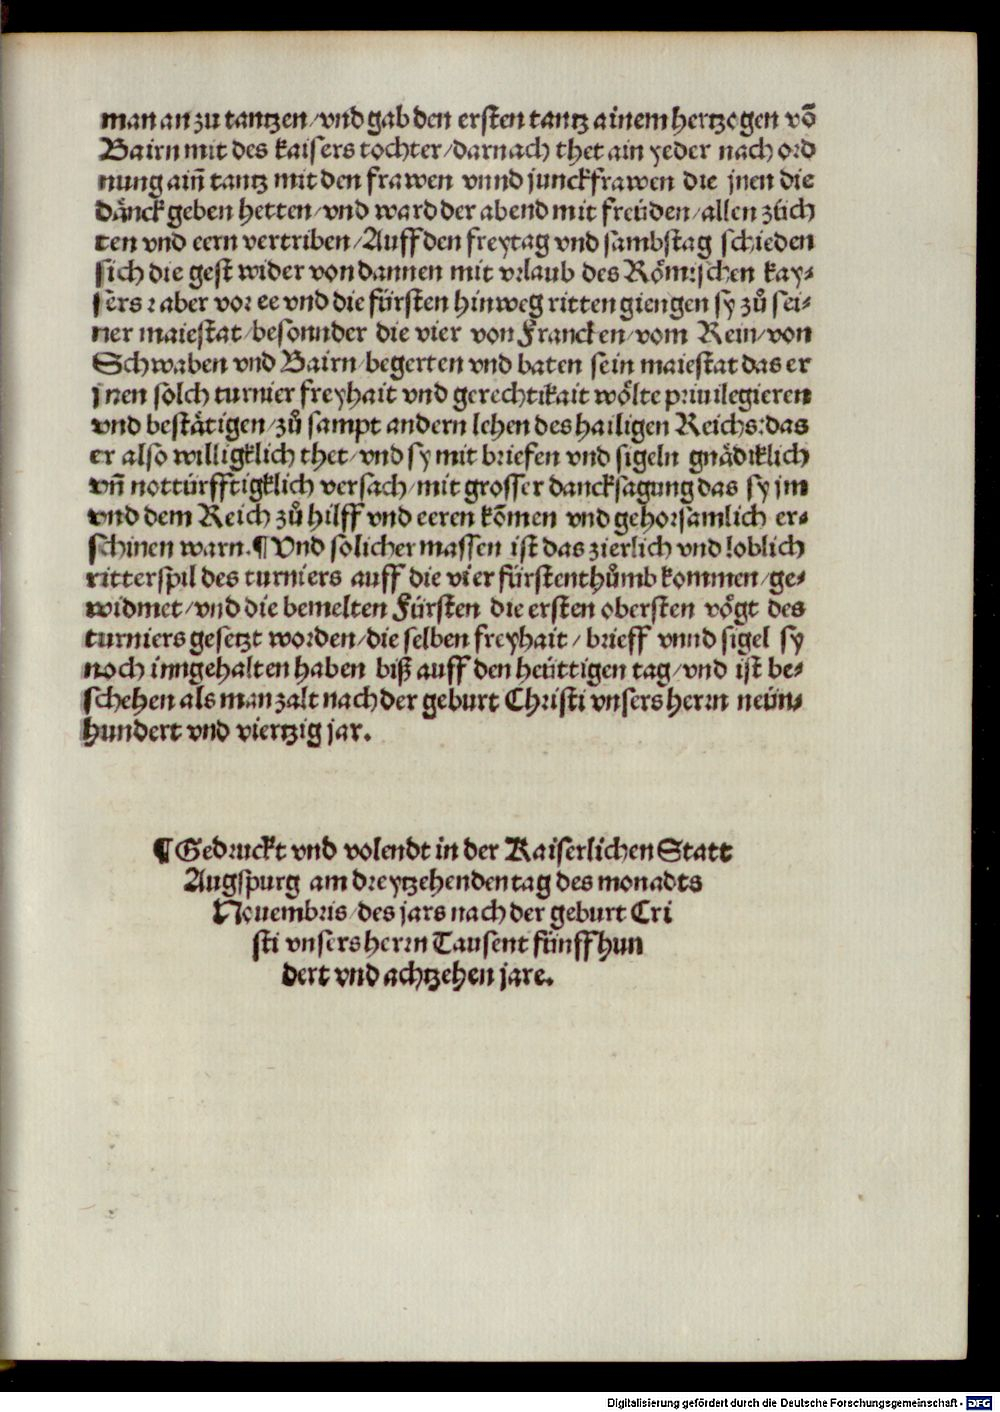 man an zu tantzen/vnd gab den ersten tantz ainem hertzogen võ
Bairn mit des kaisers tochter/darnach thet ain yeder nach ord
nung aiñ tantz mit den frawen vnnd junckfrawen die jnen die
dänck geben hetten/vnd ward der abend mit freüden/allen züch
ten vnd eern vertriben/Auff den freytag vnd sambstag schieden
sich die gest wider von dannen mit vrlaub des Römischen kay-
sers: aber vor ee vnd die fürsten hinweg ritten giengen sy zů sei-
ner maiestat/besonnder die vier von Francken/vom Rein/von
Schwaben vnd Bairn/begerten vnd baten sein maiestat das er
jnen solch turnier freyhait vnd gerechtikait wölte priuilegieren
vnd bestätigen/zů sampt andern lehen des hailigen Reichs:das
er also willigklich thet/vnd sy mit briefen vnd sigeln gnädiklich
vñ nottürfftigklich versach/mit grosser dancksagung das sy jm
vnd dem Reich zů hilff vnd eeren kõmen vnd gehorsamlich er-
schinen warn.¶Vnd solicher massen ist das zierlich vnd loblich
ritterspil des turniers auff die vier fürstenthůmb kommen/ge-
widmet/vnd die bemelten Fürsten die ersten obersten vögt des
turniers gesetzt worden/die selben freyhait/brieff vnnd sigel sy
noch inngehalten haben biß auff den heüttigen tag/vnd ist be-
schehen als man zalt nach der geburt Christi vnsers herrn neün-
hundert vnd viertzig jar.
¶Gedruckt vnd volendt in der Kaiserlichen Statt
Augspurg am dreytzehenden tag des monadts
Nouembris/des jars nach der geburt Cri
sti vnsers herrn Tausent fünff hun
dert vnd achtzehen jare.
Digitalisierung gefördert durch die Deutsche Forschungsgemeinschaft - DFG